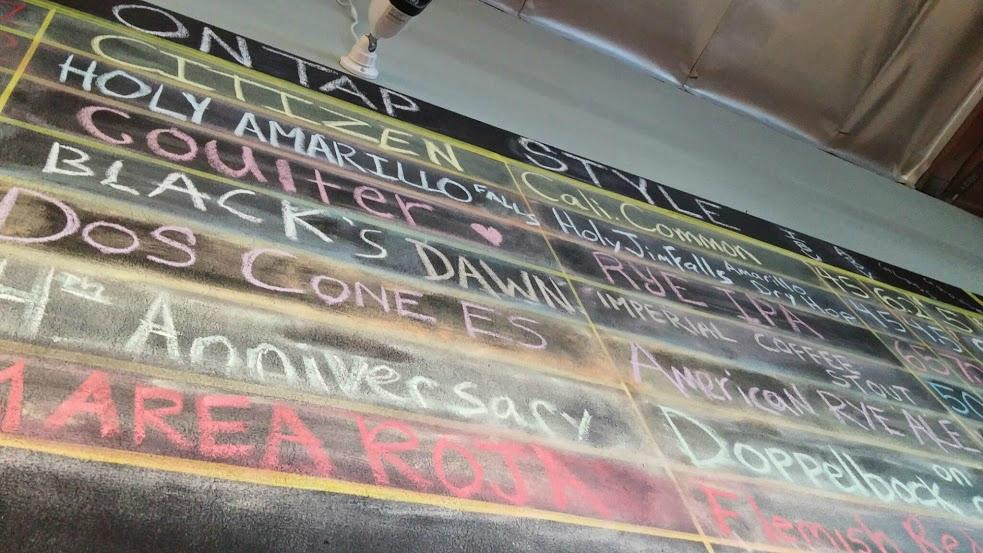 ON TAP STYLE
CITIZEN Cali. Common
HOLY AMARILLO FALLS Holy Jim Falls Amarillo Dry Hop 45
Coulter RYE IPA
BLACK'S DAWN IMPERIAL COFFEE STOUT 50
Dos CONE ES American RYE ALE
4TH Anniversary Doppelbock on
MAREA ROJA Flemish Red